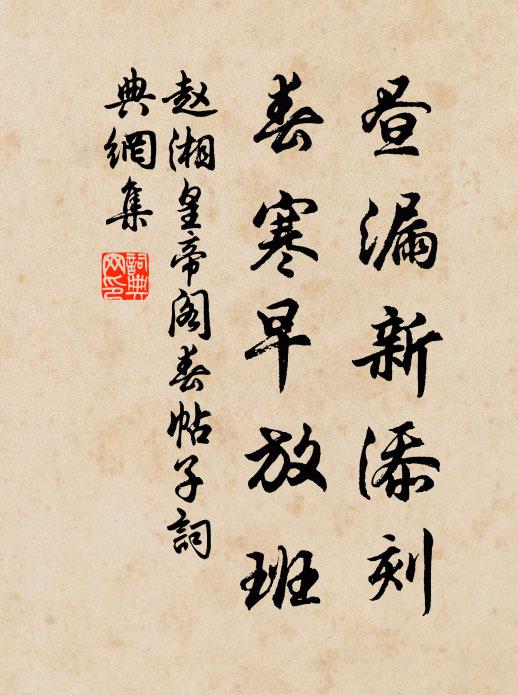 昼漏新添刻
春寒早放班
赵湘皇帝阁春帖子詞
典網集
詞典网印